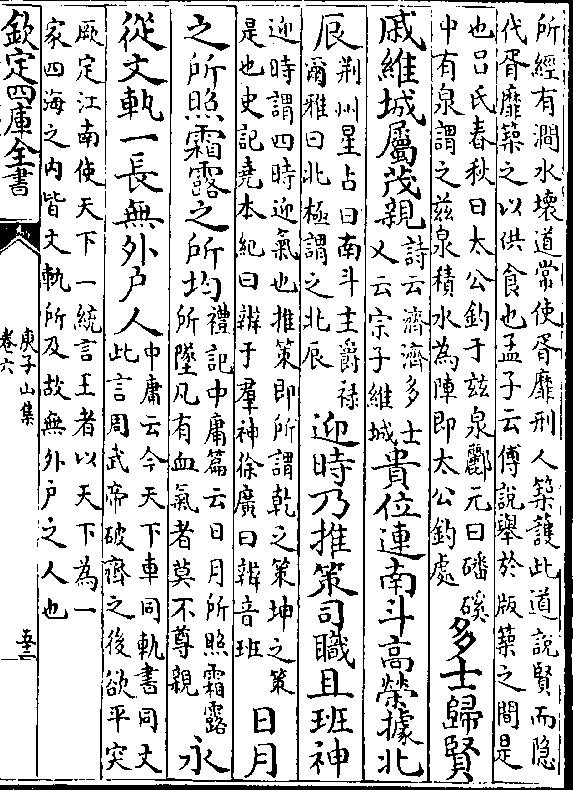 所經有澗水壞道常使胥靡刑人築護此道說賢而隐
代胥靡築之以供食也孟子云傅說舉於版築之間是
也吕氏春秋曰太公釣于兹泉酈元曰磻磎
中有泉謂之兹泉積水為陣即太公釣處
多士歸賢
戚維城屬茂親
詩云濟濟多士
又云宗子維城
貴位連南斗高榮據北
辰
荆州星占曰南斗主爵禄
爾雅曰北極謂之北辰
迎時乃推策司職且班神
迎時謂四時迎氣也推策即所謂乾之策坤之策
是也史記堯本紀曰辨于羣神徐廣曰辨音班
日月
之所照霜露之所均
禮記中庸篇云日月所照霜露
所墜凡有血氣者莫不尊親
永
從文軌一長無外户人
中庸云今天下車同軌書同文
此言周武帝破齊之後欲平突
厥定江南使天下一統言王者以天下為一
家四海之内皆文軌所及故無外户之人也
欽定四庫全書
庾子山集
卷六